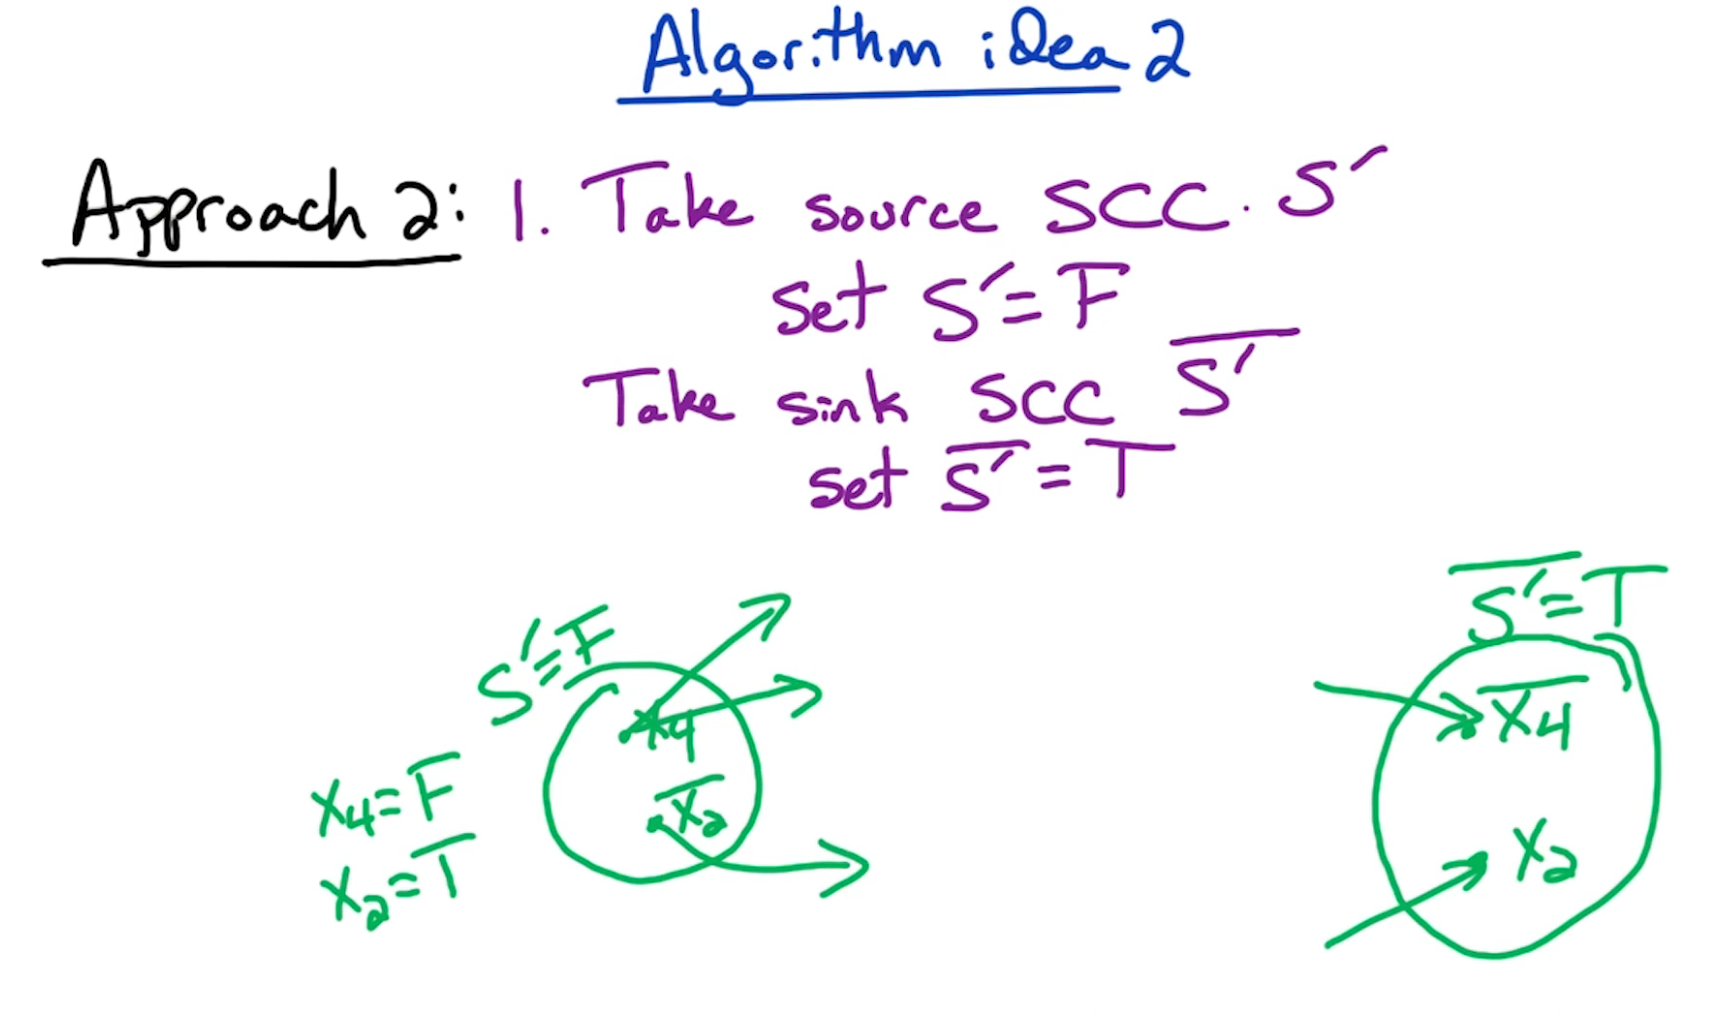 Algorithm idea 2
Approach 2: 1. Take source SCC. S′
set S′ = F
Take sink SCC S̅′
set S̅′ = T
S′ = F
x4
x̅2
x4 = F
x2 = T
S̅′ = T
x̅4
x2